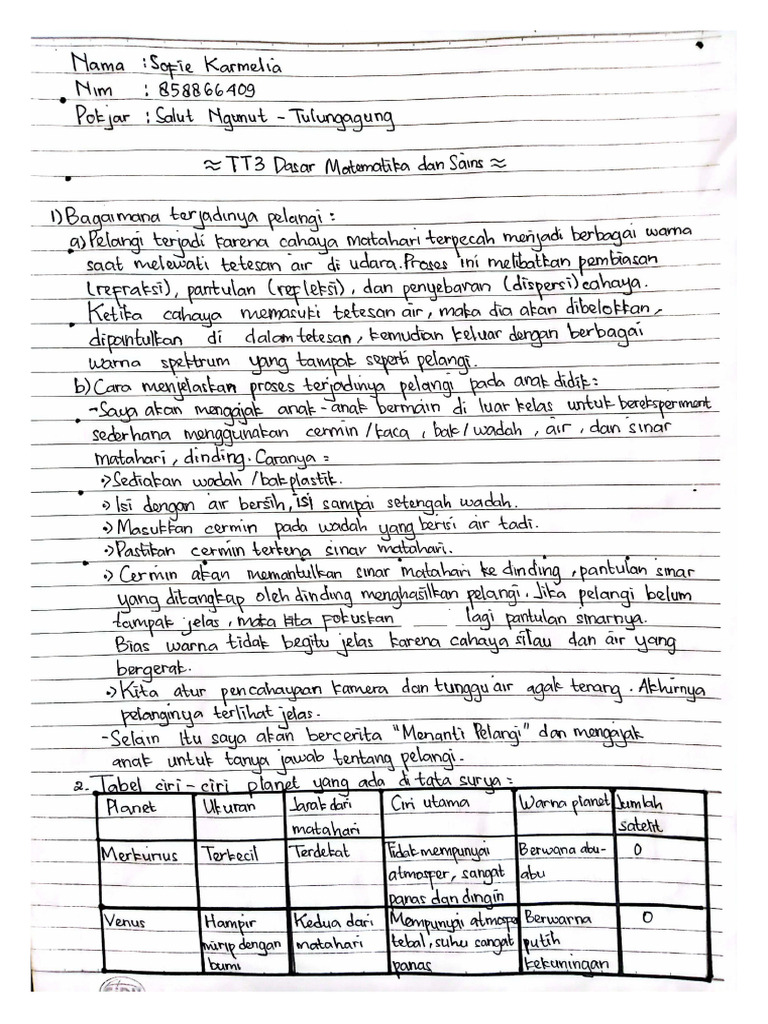 Nama : Sofie Karmelia
Nim : 858866409
Pokjar : Salut Ngunut - Tulungagung
≈ TT3 Dasar Matematika dan Sains ≈
1) Bagaimana terjadinya pelangi :
a) Pelangi terjadi karena cahaya matahari terpecah menjadi berbagai warna
saat melewati tetesan air di udara. Proses ini melibatkan pembiasan
(refraksi), pantulan (refleksi), dan penyebaran (dispersi) cahaya.
Ketika cahaya memasuki tetesan air, maka dia akan dibelokkan,
dipantulkan di dalam tetesan, kemudian keluar dengan berbagai
warna spektrum yang tampak seperti pelangi.
b) Cara menjelaskan proses terjadinya pelangi pada anak didik :
- Saya akan mengajak anak-anak bermain di luar kelas untuk bereksperiment
sederhana menggunakan cermin/kaca, bak/wadah, air, dan sinar
matahari, dinding. Caranya :
•> Sediakan wadah / bak plastik.
•> Isi dengan air bersih, isi sampai setengah wadah.
•> Masukkan cermin pada wadah yang berisi air tadi.
•> Pastikan cermin terkena sinar matahari.
•> Cermin akan memantulkan sinar matahari ke dinding, pantulan sinar
yang ditangkap oleh dinding menghasilkan pelangi. Jika pelangi belum
tampak jelas, maka kita fokuskan lagi pantulan sinarnya.
Bias warna tidak begitu jelas karena cahaya silau dan air yang
bergerak.
•> Kita atur pencahayaan kamera dan tunggu air agak tenang. Akhirnya
pelanginya terlihat jelas.
- Selain itu saya akan bercerita "Menanti Pelangi" dan mengajak
anak untuk tanya jawab tentang pelangi.
2. Tabel ciri-ciri planet yang ada di tata surya :
Planet Ukuran Jarak dari Ciri utama Warna planet Jumlah
matahari satelit
Merkurius Terkecil Terdekat Tidak mempunyai Berwana abu- 0
atmosper, sangat abu
panas dan dingin
Venus Hampir Kedua dari Mempunyai atmosper Berwarna 0
mirip dengan matahari tebal, suhu sangat putih
bumi panas kekuningan